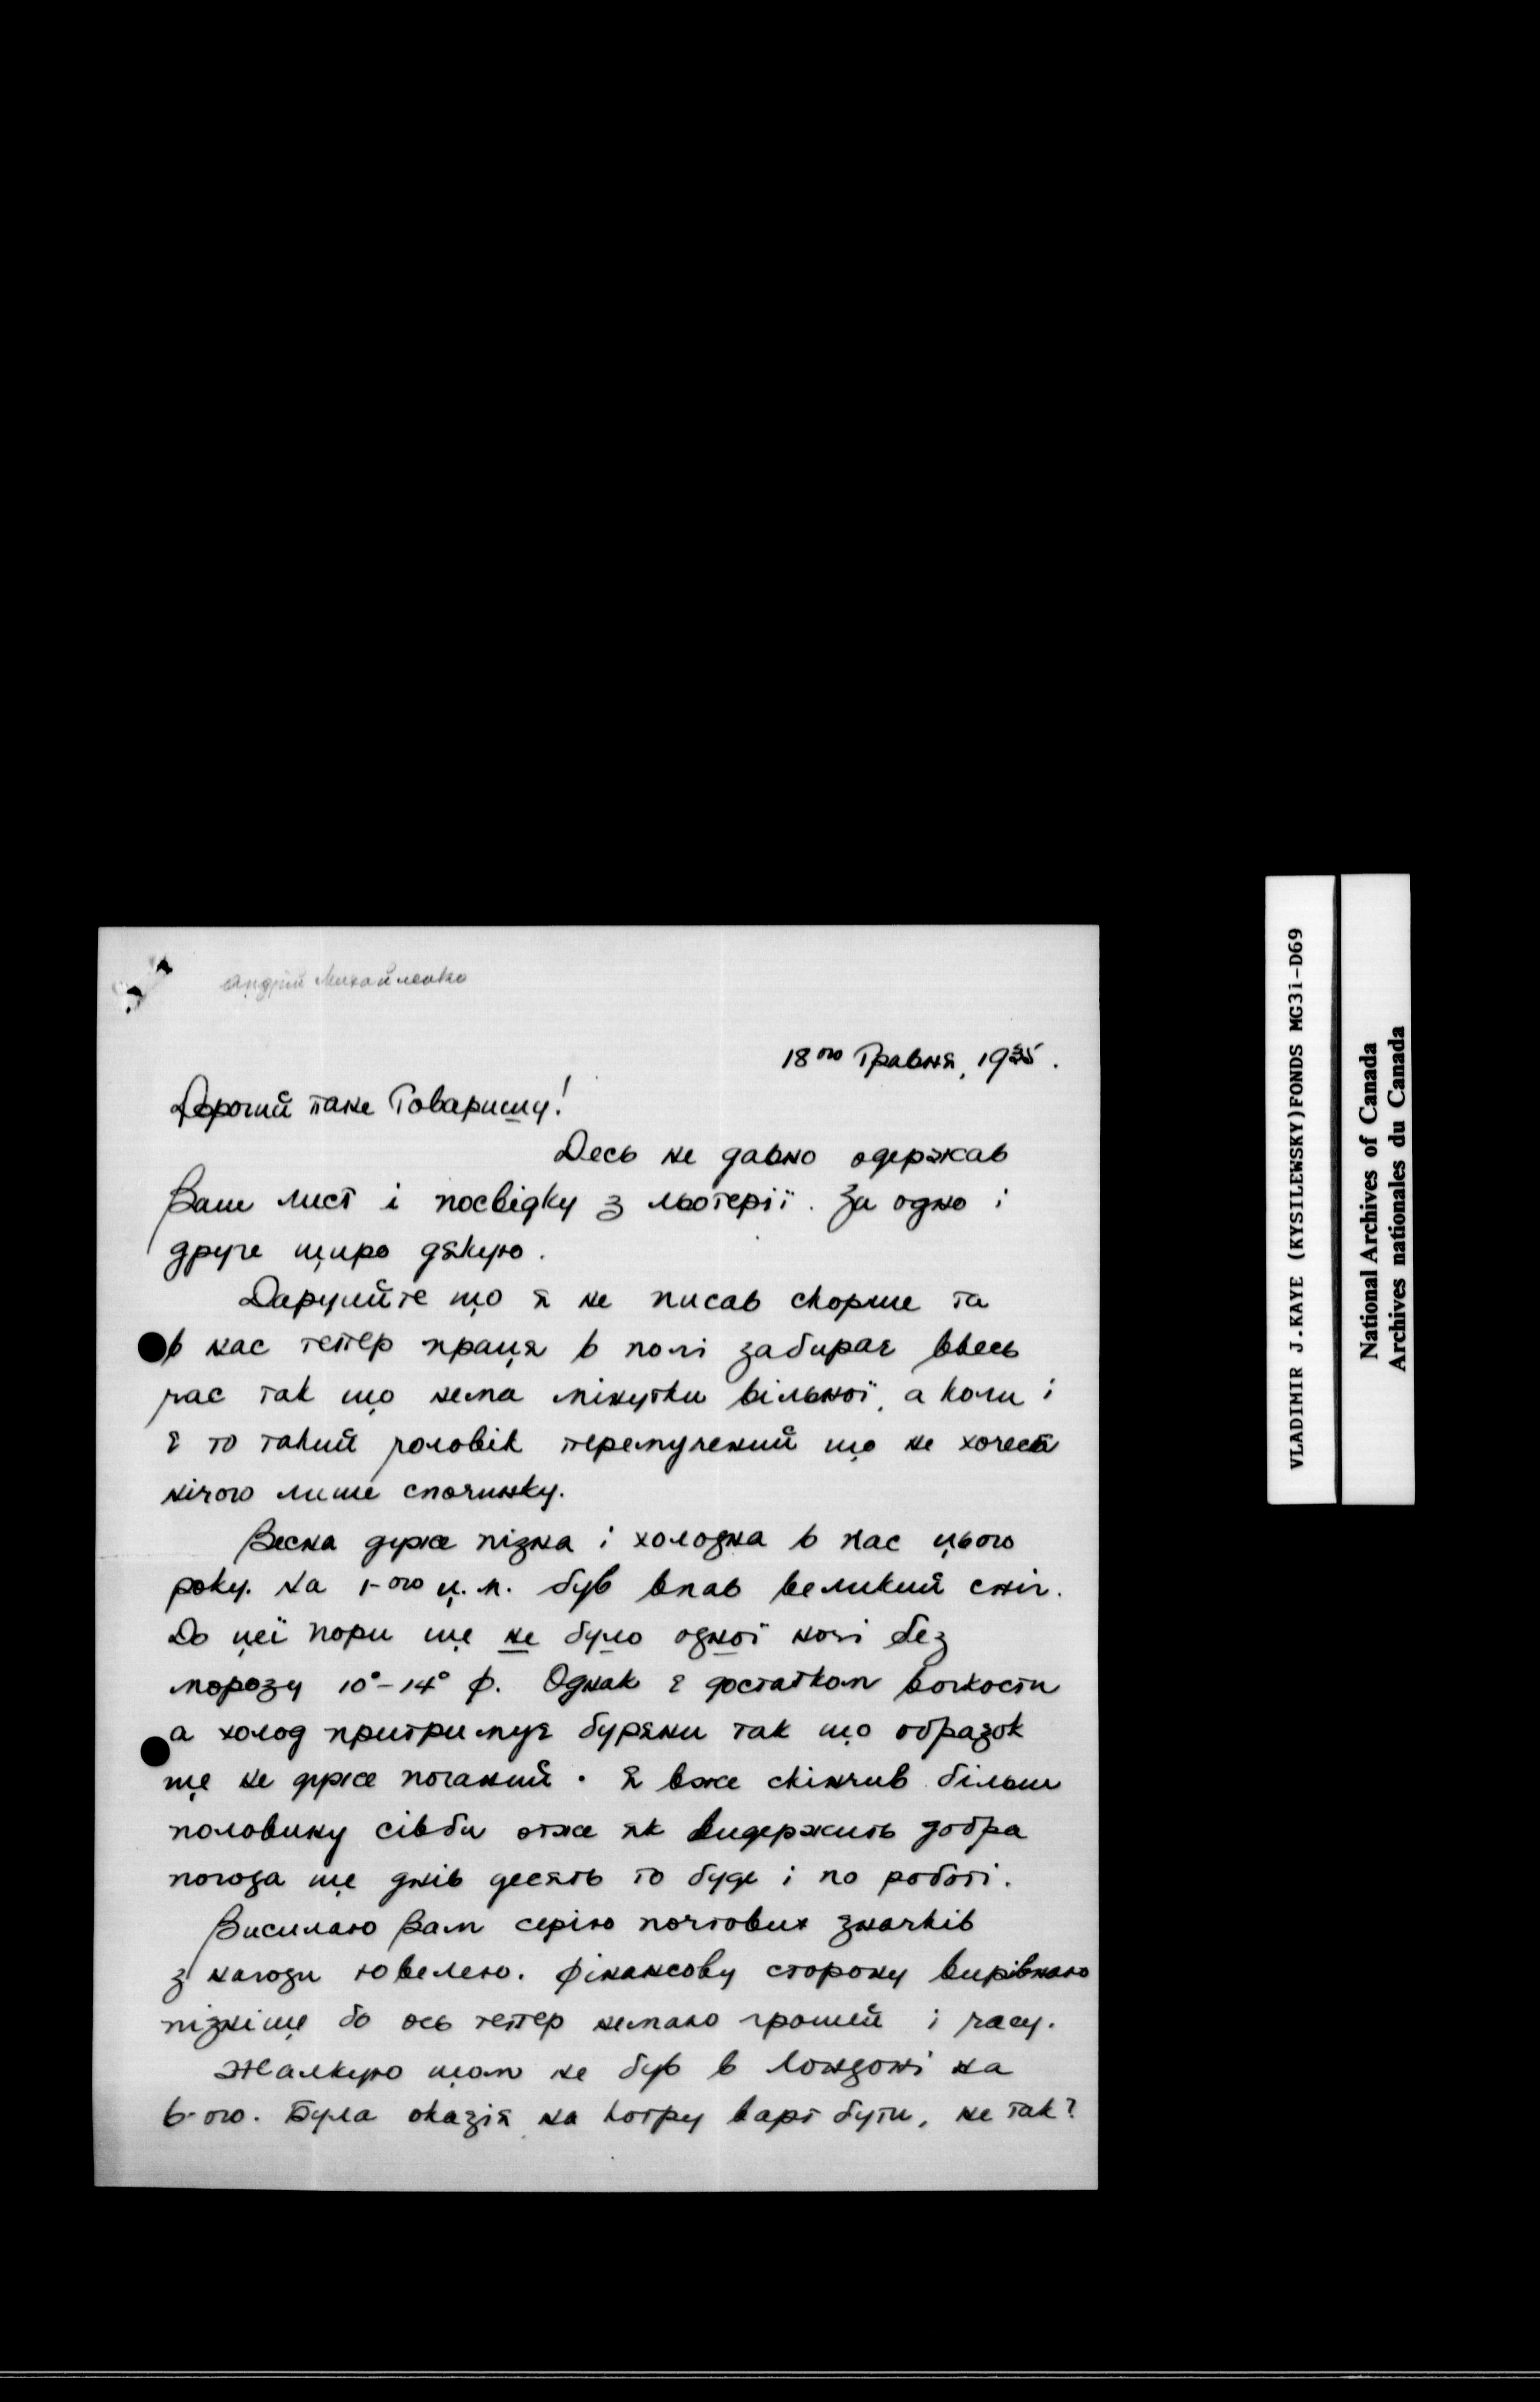 Андрій Михайленко
18ого Травня, 1935.
Дорогий пане Товаришу!
Десь не давно одержав
Ваш лист і посвідку з льотерії. За одно і
друге щиро дякую.
Даруийте що я не писав скорше та
в нас тепер праця в полі забирає ввесь
час так що нема мінутки вільної, а коли і
є то такий чоловік перемучений що не хочеся
нічого лише спочинку.
Весна дуже пізна і холодна в нас цього
року. На 1-ого ц.м. був впав великий сніг.
До цеї пори ще не було одної ночі без
морозу 10°-14° Ф. Однак є достатком вогкости
а холод притримує буряни так що образок
ще не дуже поганий. Я вже скінчив більш
половину сівби отже як видержить добра
погода ще днів десять то буде і по роботі.
Висилаю Вам серію почтових значків
з нагоди ювелею. Фінансову сторону вирівнаю
пізніще бо ось тепер немаю грошей і часу.
Жалкую щом не був в Лондоні на
6-ого. Була оказія на котру варт бути, не так?
VLADIMIR J.KAYE (KYSILEWSKY)FONDS MG31-D69
National Archives of Canada
Archives nationales du Canada